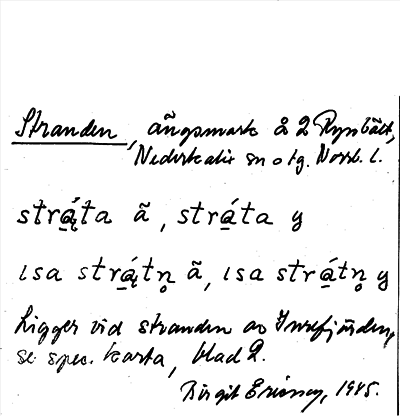 Stranden, ängsmark å 2 Rynbäck,
Nederkalix sn o tg. Norrb. l.
strą́ta ã, strá̱ta y
ısa strą́tn̥ ã, ısa strá̱tn̥ y
Ligger vid stranden av Innefjärden,
se spec. karta, blad 2.
Birgit Ericney, 1945.